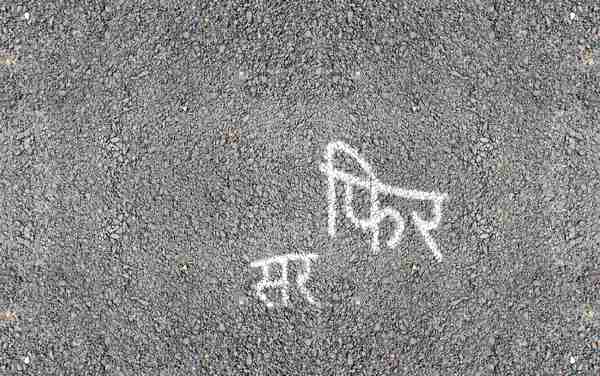 फिर
सर